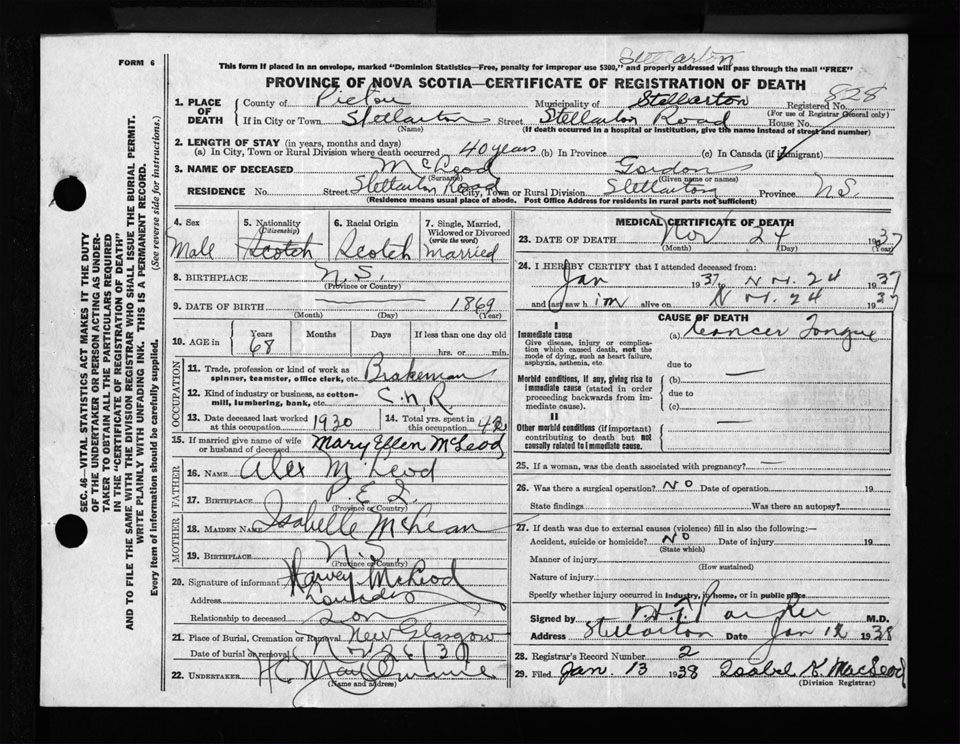 Stellarton
FORM 6
This form if placed in an envelope, marked "Dominion Statistics—Free, penalty for improper use $300," and properly addressed will pass through the mail "FREE"
PROVINCE OF NOVA SCOTIA—CERTIFICATE OF REGISTRATION OF DEATH
828
1. PLACE OF DEATH County of Pictou Municipality of Stellarton Registered No.
(For use of Registrar General only)
If in City or Town Stellarton Street Stellarton Road House No.
(Name) (If death occurred in a hospital or institution, give the name instead of street and number)
2. LENGTH OF STAY (in years, months and days)
(a) In City, Town or Rural Division where death occurred 40 years (b) In Province (c) In Canada (if immigrant)
3. NAME OF DECEASED McLeod Gordon
(Surname) (Given name or names)
RESIDENCE No. Street Stellarton Road City, Town or Rural Division Stellarton Province N.S.
(Residence means usual place of abode. Post Office Address for residents in rural parts not sufficient)
4. Sex Male
5. Nationality (Citizenship) Scotch
6. Racial Origin Scotch
7. Single, Married, Widowed or Divorced (write the word) Married
8. BIRTHPLACE N.S.
(Province or Country)
9. DATE OF BIRTH 1869
(Month) (Day) (Year)
10. AGE in Years 68 Months Days If less than one day old
hrs. or min.
OCCUPATION
11. Trade, profession or kind of work as spinner, teamster, office clerk, etc. Brakeman
12. Kind of industry or business, as cotton-mill, lumbering, bank, etc. C.N.R.
13. Date deceased last worked at this occupation 1930
14. Total yrs. spent in this occupation
15. If married give name of wife or husband of deceased Mary Ellen McLeod
FATHER
16. NAME Alex McLeod
17. BIRTHPLACE P.E.I
(Province or Country)
MOTHER
18. MAIDEN NAME Isabelle McLean
19. BIRTHPLACE N.S
(Province or Country)
20. Signature of informant Harvey McLeod
Address
Relationship to deceased Son
21. Place of Burial, Cremation or Removal New Glasgow
Date of burial or removal Nov 26/37
22. UNDERTAKER
(Name and address)
MEDICAL CERTIFICATE OF DEATH
23. DATE OF DEATH Nov 24 1937
(Month) (Day) (Year)
24. I HEREBY CERTIFY that I attended deceased from:
Jan 1937 to Nov. 24 1937
and last saw him alive on Nov. 24 1937
CAUSE OF DEATH
I
Immediate cause (a) Cancer Tongue
Give disease, injury or complication which caused death, not the mode of dying, such as heart failure, asphyxia, asthenia, etc.
due to
Morbid conditions, if any, giving rise to immediate cause (stated in order proceeding backwards from immediate cause). (b)
due to
(c)
II
Other morbid conditions (if important) contributing to death but not causally related to immediate cause.
25. If a woman, was the death associated with pregnancy? —
26. Was there a surgical operation? No Date of operation 19
State findings Was there an autopsy?
27. If death was due to external causes (violence) fill in also the following:—
Accident, suicide or homicide? No Date of injury 19
(State which)
Manner of injury
(How sustained)
Nature of injury
Specify whether injury occurred in industry, in home, or in public place
Signed by Parker M.D.
Address Stellarton Date Jan 12 1938
28. Registrar's Record Number 2
29. Filed Jan. 13 1938 Isabel K. MacLeod
(Division Registrar)
SEC. 46—VITAL STATISTICS ACT MAKES IT THE DUTY
OF THE UNDERTAKER OR PERSON ACTING AS UNDER-
TAKER TO OBTAIN ALL THE PARTICULARS REQUIRED
IN THE "CERTIFICATE OF REGISTRATION OF DEATH"
AND TO FILE THE SAME WITH THE DIVISION REGISTRAR WHO SHALL ISSUE THE BURIAL PERMIT.
WRITE PLAINLY WITH UNFADING INK. THIS IS A PERMANENT RECORD.
Every item of information should be carefully supplied. (See reverse side for instructions.)